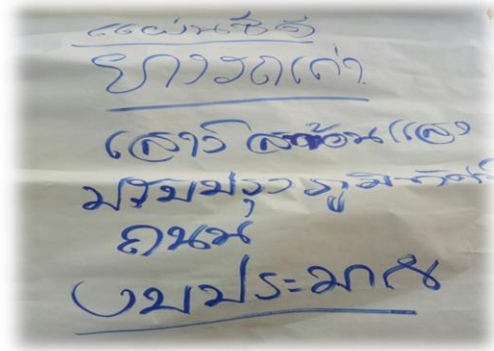 แผ่นซีดี
ยางรถเก่า
เสาร์ สะท้อนแสง
ปรับปรุงภูมิทัศน์
ถนน
งบประมาณ